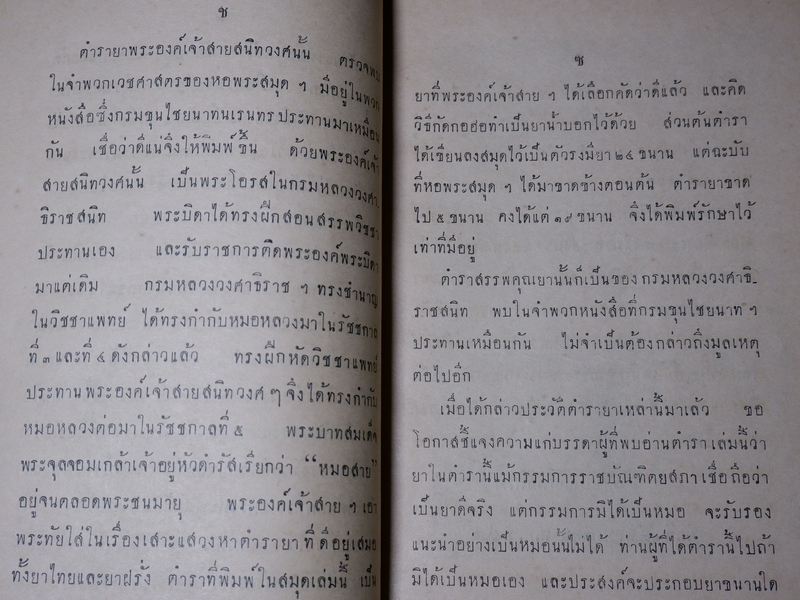 ช
ตำรายาพระองค์เจ้าสายสนิทวงศ์นั้น ตรวจพบ
ในจำพวกเวชศาสตรของหอพระสมุด ฯ มีอยู่ในพวก
หนังสือซึ่งกรมขุนไชยนาทนเรนทรประทานมาเหมือน
กัน เชื่อว่าดีแน่จึงให้พิมพ์ขึ้น ด้วยพระองค์เจ้า
สายสนิทวงศ์นั้น เป็นพระโอรสในกรมหลวงวงศา-
ธิราชสนิท พระบิดาได้ทรงฝึกสอนสรรพวิชชา
ประทานเอง และรับราชการติดพระองค์พระบิดา
มาแต่เดิม กรมหลวงวงศาธิราช ฯ ทรงชำนาญ
ในวิชชาแพทย์ ได้ทรงกำกับหมอหลวงมาในรัชชกาล
ที่ ๓ และที่ ๔ ดังกล่าวแล้ว ทรงฝึกหัดวิชชาแพทย์
ประทานพระองค์เจ้าสายสนิทวงศ์ ๆ จึงได้ทรงกำกับ
หมอหลวงต่อมาในรัชชกาลที่ ๕ พระบาทสมเด็จ
พระจุลจอมเกล้าเจ้าอยู่หัวดำรัสเรียกว่า “หมอสาย”
อยู่จนตลอดพระชนมายุ พระองค์เจ้าสาย ฯ เอา
พระทัยใส่ในเรื่องเสาะแสวงหาตำรายา ที่ดีอยู่เสมอ
ทั้งยาไทยและยาฝรั่ง ตำราที่พิมพ์ในสมุดเล่มนี้ เป็น
ซ
ยาที่พระองค์เจ้าสาย ฯ ได้เลือกคัดว่าดีแล้ว และคิด
วิธีกัดกอฮอทำเป็นยาน้ำบอกไว้ด้วย ส่วนต้นตำรา
ได้เขียนลงสมุดไว้เป็นตัวรงมียา ๒๔ ขนาน แต่ฉะบับ
ที่หอพระสมุด ฯ ได้มาขาดข้างตอนต้น ตำรายาขาด
ไป ๕ ขนาน คงได้แต่ ๑๙ ขนาน จึงได้พิมพ์รักษาไว้
เท่าที่มีอยู่
ตำราสรรพคุณยานั้นก็เป็นของกรมหลวงวงศาธิ-
ราชสนิท พบในจำพวกหนังสือที่กรมขุนไชยนาท ฯ
ประทานเหมือนกัน ไม่จำเป็นต้องกล่าวถึงมูลเหตุ
ต่อไปอีก
เมื่อได้กล่าวประวัติตำรายาเหล่านี้มาแล้ว ขอ
โอกาสชี้แจงความแก่บรรดาผู้ที่พบอ่านตำราเล่มนี้ว่า
ยาในตำรานี้แม้กรรมการราชบัณฑิตยสภาเชื่อถือว่า
เป็นยาดีจริง แต่กรรมการมิได้เป็นหมอ จะรับรอง
แนะนำอย่างเป็นหมอนั้นไม่ได้ ท่านผู้ที่ได้ตำรานี้ไปถ้า
มิได้เป็นหมอเอง และประสงค์จะประกอบยาขนานใด